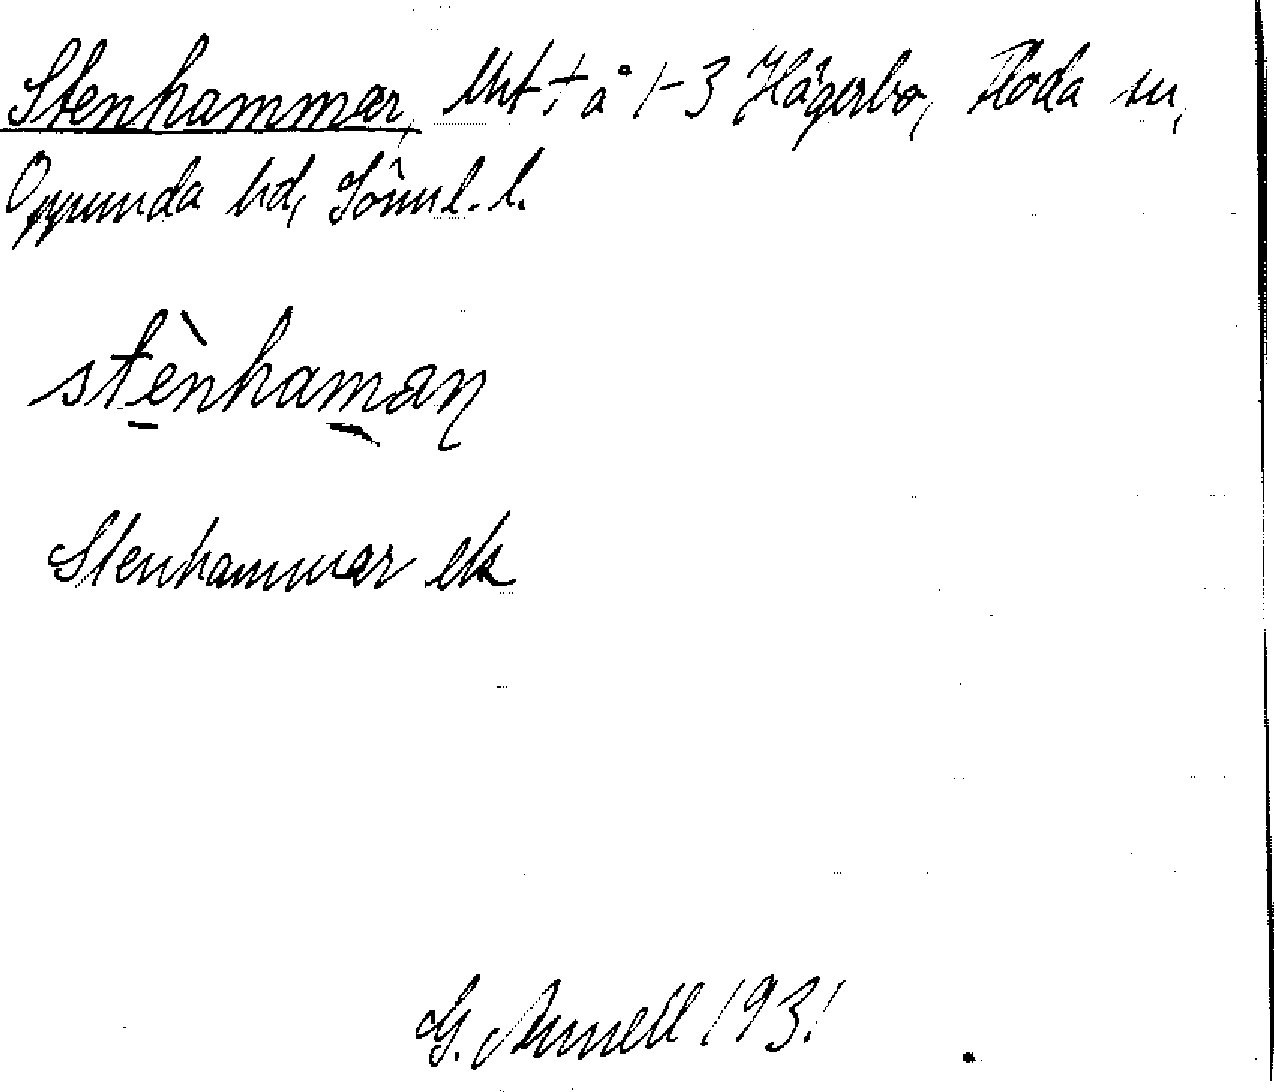 Stenhammar, Uht. t å 1-3 Hägerbo, Floda sn,
Oppunda hd, Sörml. l.
stènhaman
Stenhammar ek
G. Arnell 1931